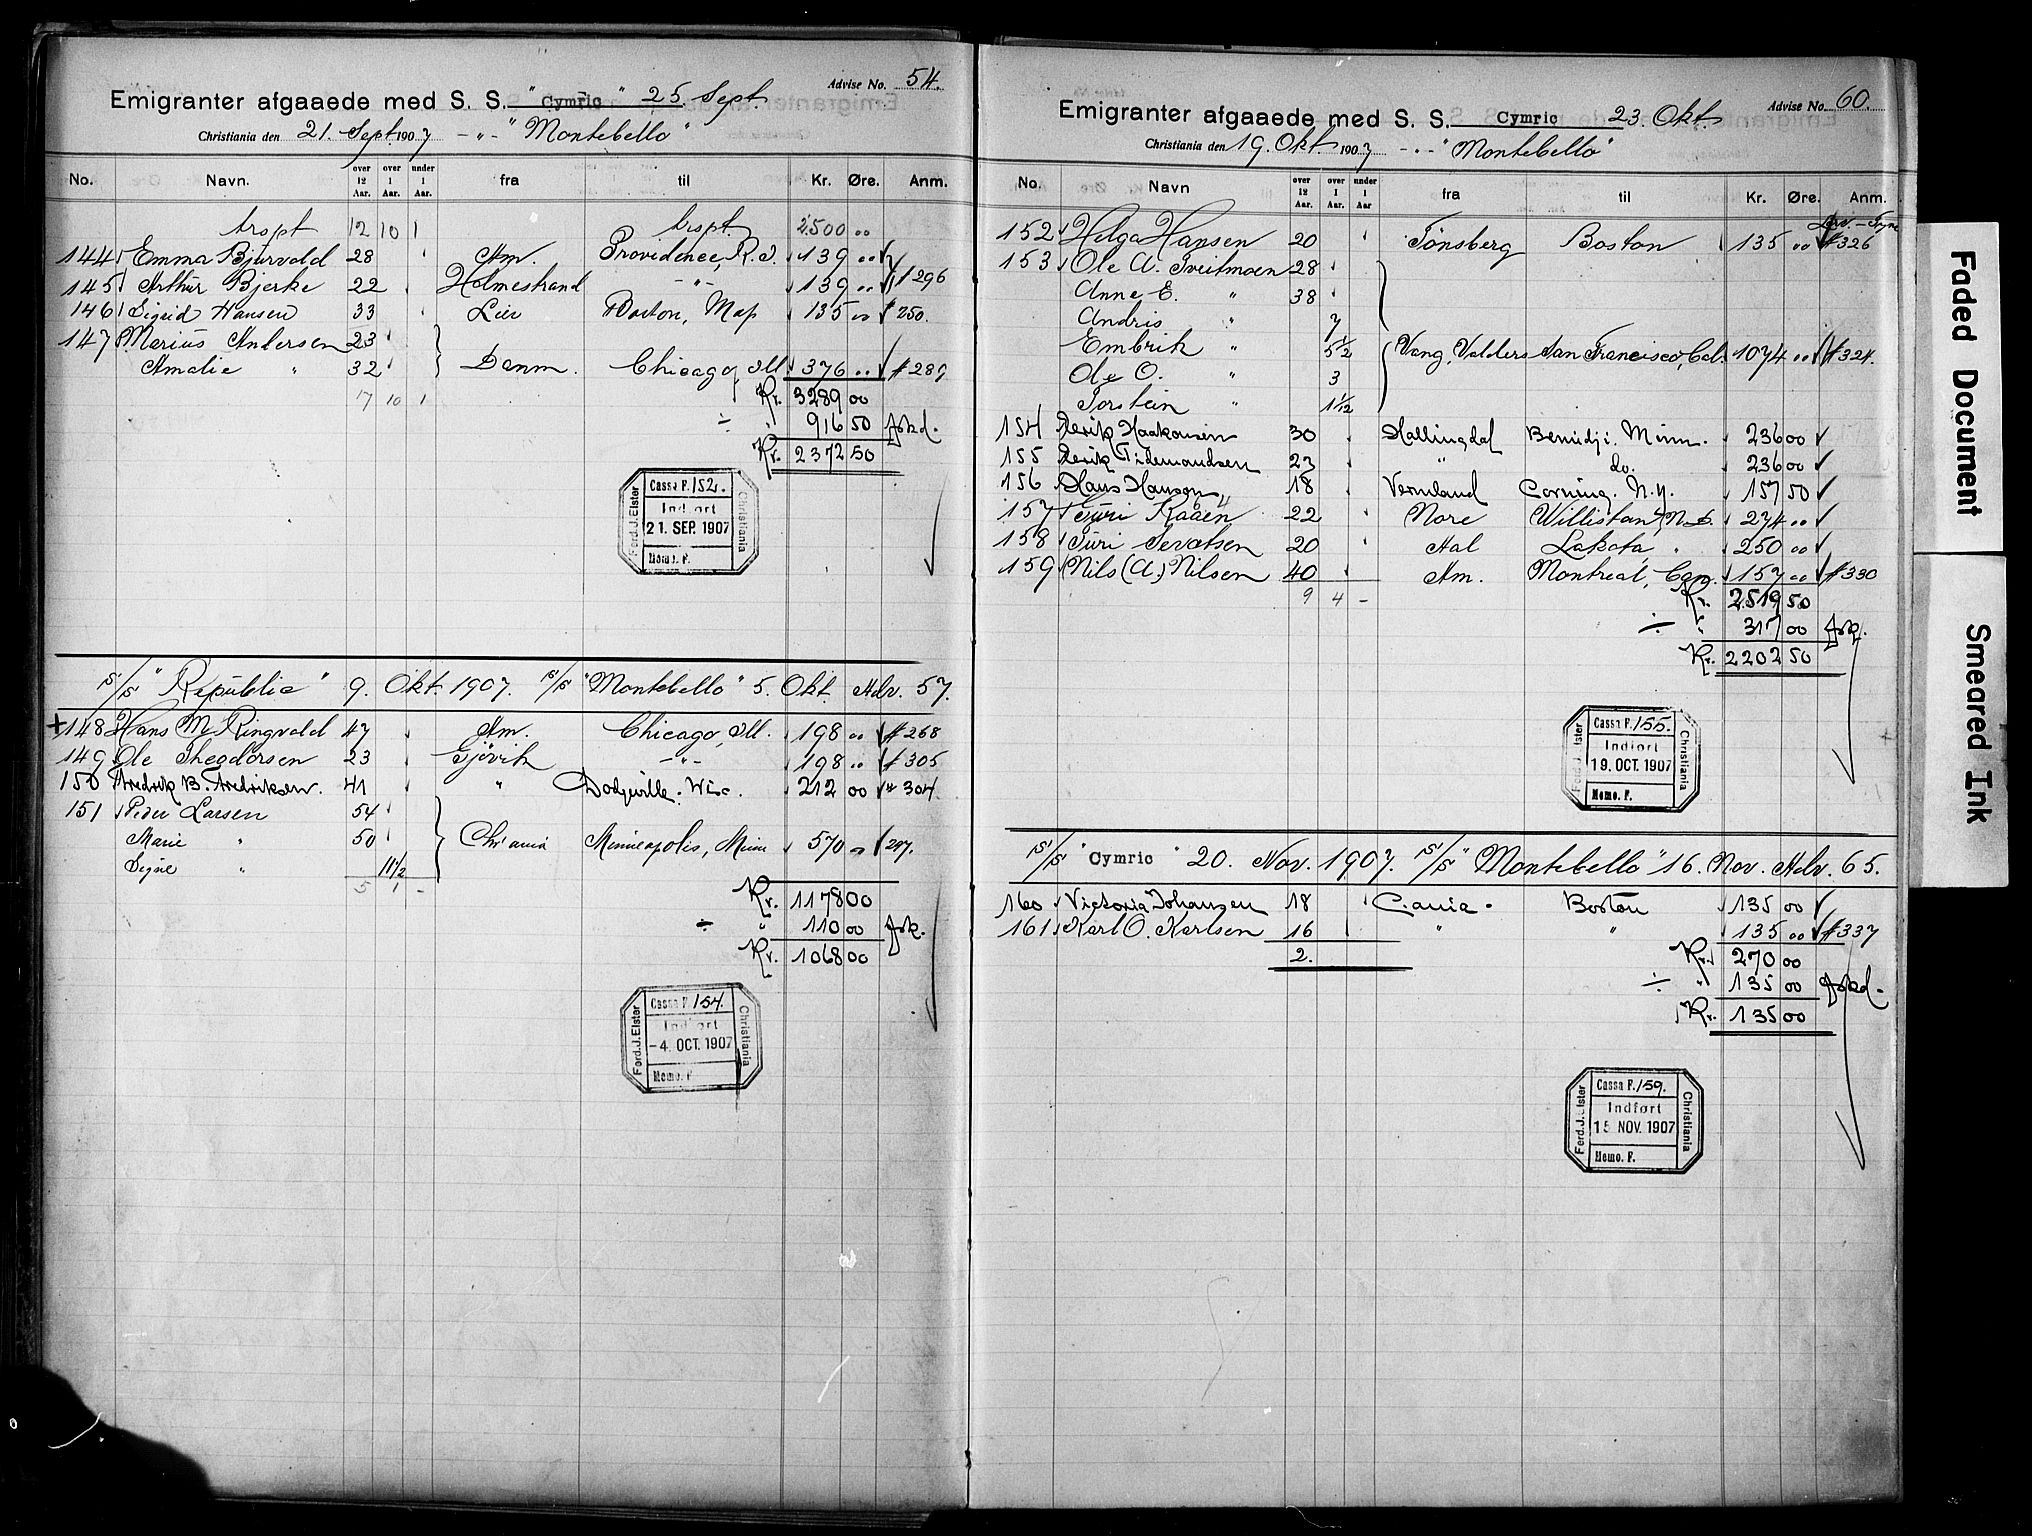 Advise No. 54.
Emigranter afgaaede med S. S. "Cymric" 25 Sept.
Christiania den 21. Sept. 1907 -"- "Montebello"
No. Navn. over 12 Aar. over 1 Aar. under 1 Aar. fra til Kr. Øre. Anm.
trspt 12 10 1 trspt. 2500 "
144 Emma Bjurvald 28 Am. Providence, R.I. 139 "
145 Arthur Bjerke 22 Holmestrand -"- 139 " # 296
146 Sigrid Hansen 33 Lier Boston, Mass 135 00 # 250.
147 Marius Andersen 23
Amalie " 32 Danm. Chicago, Ill. 376 " # 289
17 10 1 Kr. 3289 00
÷ " 916 50
Kr. 2372 50
Cassa F. 152.
Indført
21. SEP. 1907
Memo. F.
Ferd. J. Elster
Christiania
S/S "Republic" 9. Okt. 1907. S/S "Montebello" 5. Okt. Adv. 57.
+ 148 Hans M. Ringvold 47 Am. Chicago, Ill. 198 " # 268
149 Ole Theodorsen 23 Gjövik -"- 198 " # 305
150 Fredrik B. Fredriksen. 41 " Dodgeville. Wisc. 212 00 " 304.
151 Peder Larsen 54
Marie " 50 Chr'ania Minneapolis, Minn 570 " 297.
Signe " 11 1/2
5 1 - Kr. 1178 00
÷ " 110 00
Kr. 1068 00
Cassa F. 154.
Indført
-4. OCT. 1907
Memo. F
Ferd. J. Elster
Christiania
Advise No. 60.
Emigranter afgaaede med S. S. Cymric 23. Okt.
Christiania den 19. Okt. 1907 -"- "Montebello"
No. Navn over 12 Aar. over 1 Aar. under 1 Aar fra til Kr. Øre. Anm.
152 Helga Hansen 20 Tönsberg Boston 135 " # 326
153 Ole A. Tveitmoen 28
Anne E. " 38
Andris " 7
Embrik " 5 1/2 Vang, Valders San Francisco, Cal. 1074 " # 324.
Ole O. " 3
Torstein " 1 1/12
154 Herik Haakonsen 30 Hallingdal Bemidji. Minn. 236 00
155 Herik Tidemandsen 23 " do. 236 00
156 Hans Hanson 18 Vermland Corning. N.Y. 157 50
157 Turi Kaaen 22 Nore Williston, N.D. 274 "
158 Turi Sevatsen 20 Aal Lakota, " 250 "
159 Nils (A.) Nilsen 40 Am. Montreal, Can. 157 " # 330
9 4 - Kr. 2519 50
÷ " 317 00
Kr. 2202 50
Cassa F. 155.
Indført
19. OCT. 1907
Memo. F.
Ferd. J. Elster
Christiania
S/S "Cymric" 20. Nov. 1907. S/S "Montebello" 16. Nov. Adv. 65.
160 Victoria Johansen 18 C.ania. Boston 135 00
161 Karl O. Karlsen 16 " " 135 00 # 337
2. Kr. 270 00
÷ " 135 00
Kr. 135 00
Cassa F. 159.
Indført
15 NOV. 1907
Memo. F.
Ferd. J. Elster
Christiania
Faded Document
Smeared Ink